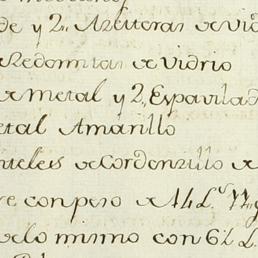 de y 2,, Azeiteras de Vid
Redomitas de Vidrio
de Metal y 2,, Espavilad
etal Amarillo
nteles de Cordonzillo de
re con peso de 14 L.s 77
de lo mismo con 62 L.